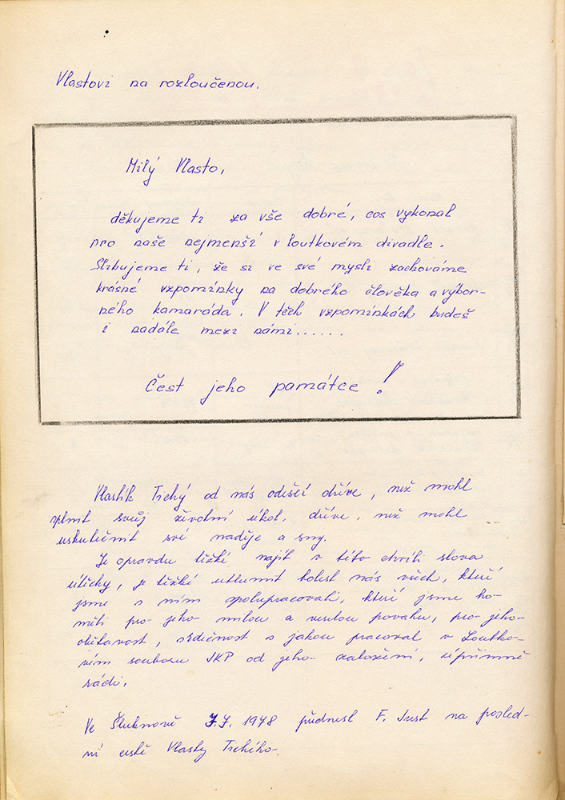 Vlastovi na rozloučenou.
Milý Vlasto,
děkujeme ti za vše dobré, cos vykonal
pro naše nejmenší v loutkovém divadle.
Slibujeme ti, že si ve své mysli zachováme
krásné vzpomínky na dobrého člověka a výbor-
ného kamaráda. V těch vzpomínkách budeš
i nadále mezi námi......
Čest jeho památce!
Vlastík Tichý od nás odešel dříve, než mohl
splnit svůj životní úkol, dříve, než mohl
uskutečnit své naděje a sny.
Je opravdu těžké najít v této chvíli slova
útěchy, je těžké utlumit bolest nás všech, kteří
jsme s ním spolupracovali, kteří jsme ho
měli pro jeho milou a veselou povahu, pro jeho
obětavost, srdečnost s jakou pracoval v Loutko-
vém souboru JKP od jeho založení, upřímně
rádi.
Ve Šluknově 1978 přednesl F. Just na posled-
ní cestě Vlasty Tichého.